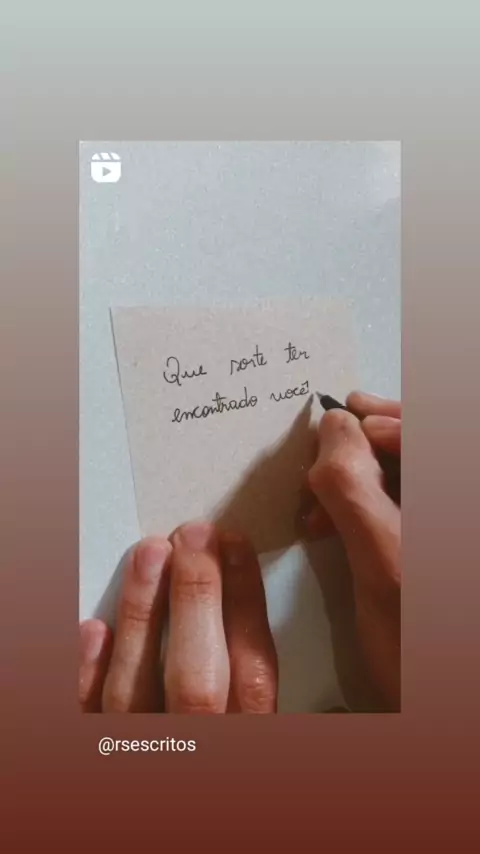 Que sorte ter
encontrado você
@rsescritos